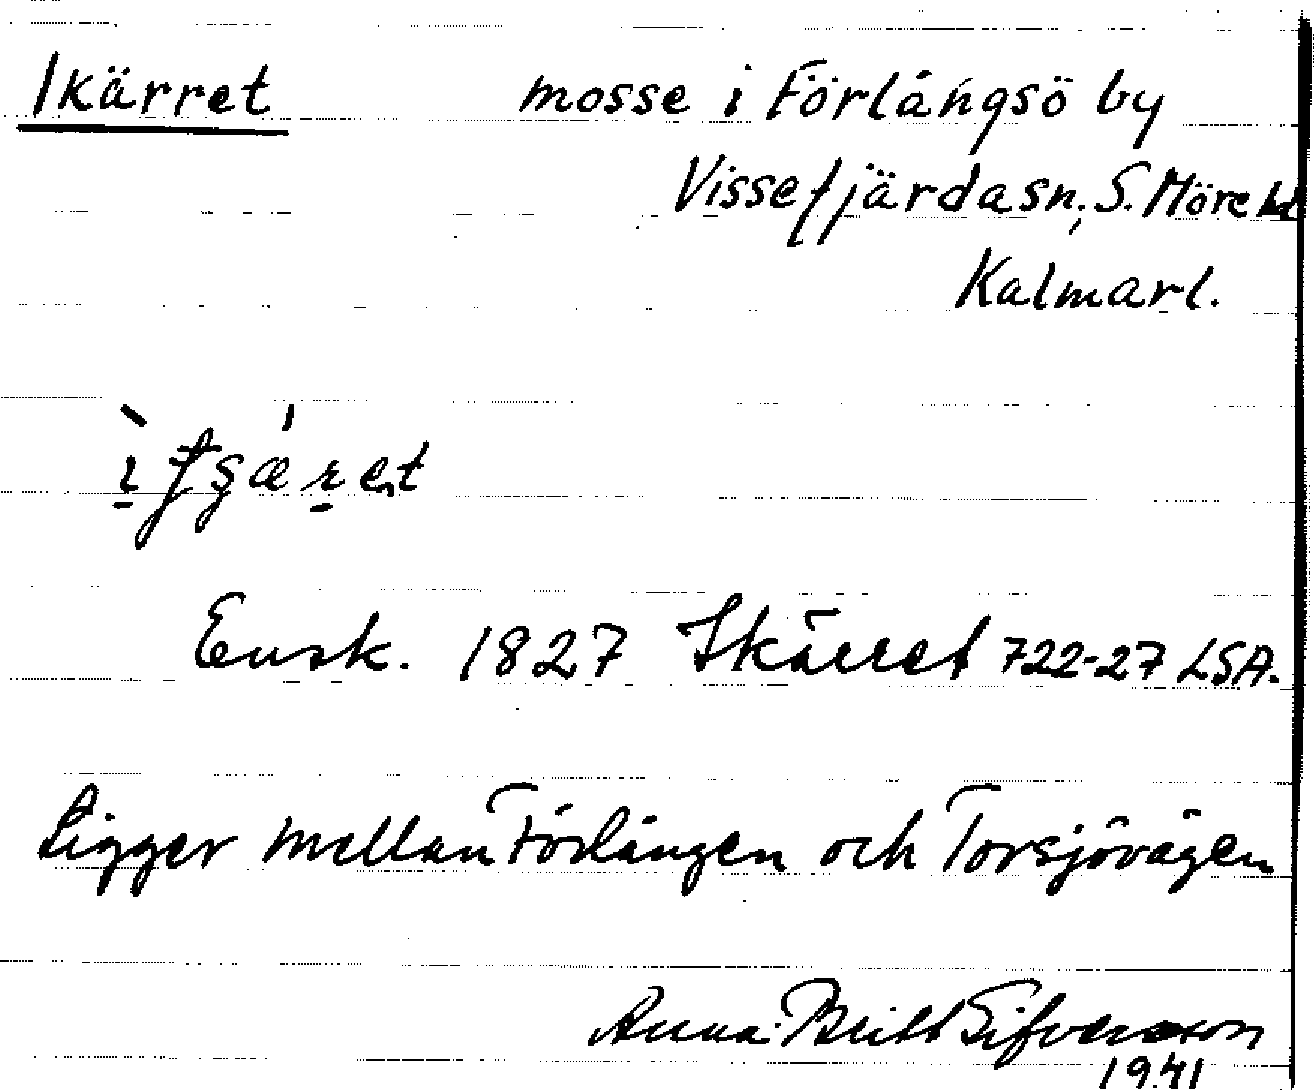 Ikärret mosse i Förlångsö by
Vissefjärda sn, S. Möre hd
Kalmarl.
Ensk. 1827 Ikärret 722-27 LSA.
Ligger mellan Förlången och Torsjövägen
Anna-Britt Sifversson
1941